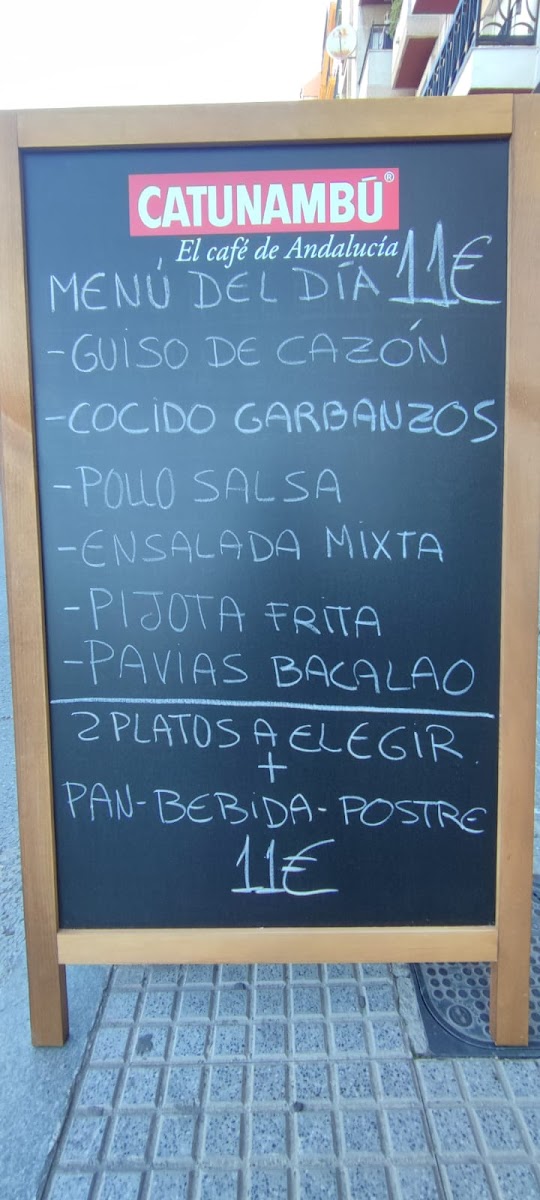 CATUNAMBÚ®
El café de Andalucía
MENÚ DEL DÍA 11€
-GUISO DE CAZÓN
-COCIDO GARBANZOS
-POLLO SALSA
-ENSALADA MIXTA
-PIJOTA FRITA
-PAVIAS BACALAO
2 PLATOS A ELEGIR.
+
PAN-BEBIDA-POSTRE
11€